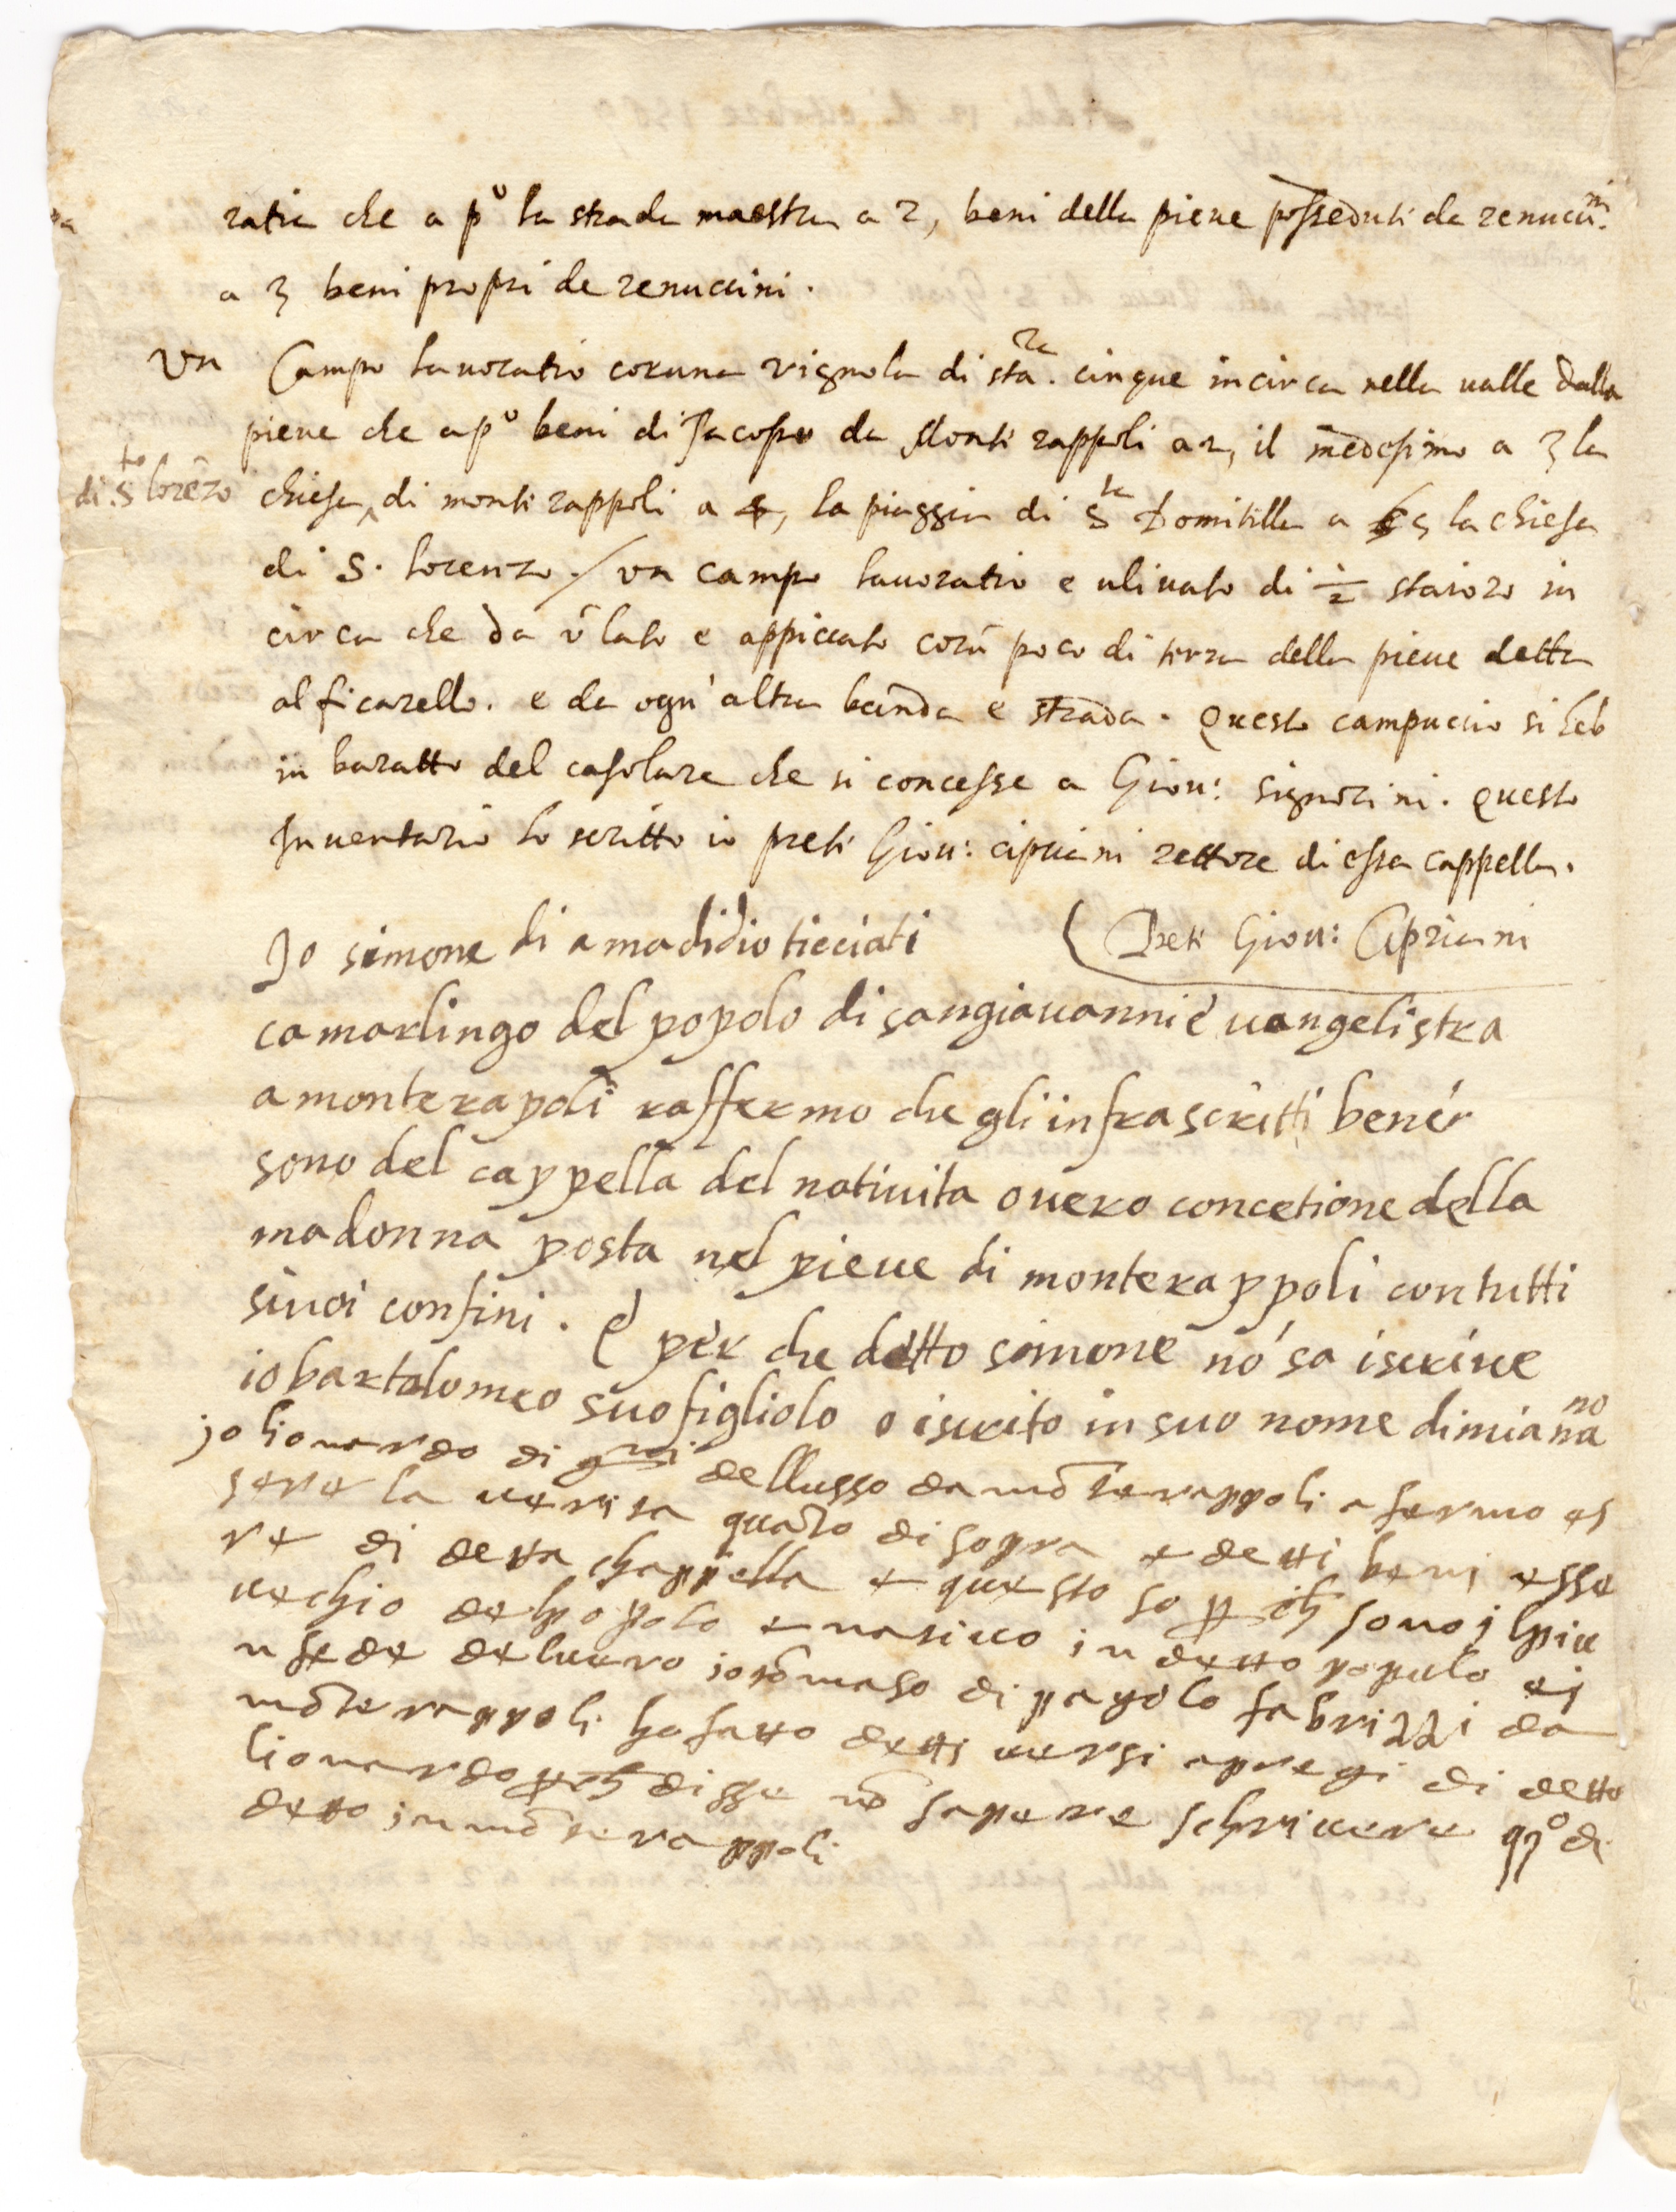 ratia che a p° la strada maestra a 2, beni della pieve posseduti da renuccini.
a 3 beni propri de renuccini.
Un Campo lavoratio con una vignola di stara. cinque incirca nella valle dalla
pieve che a p° beni di Jacopo da Monti rappoli a 2, il medesimo a 3 la
di S.to lorēzo
chiesa ^ di monti rappoli a 4, la piaggia di S.ta Domitilla a 5 la chiesa
di S. lorenzo. / un campo lavoratio e ulivato di ½ staioro in
circa che da ū lato e appiccato con ū poco di terra della pieve detta
al ficarello. e da ogn' altra banda e strada. Questo campuccio si heb
in baratto del casolare che si concesse a Giov: signorini. Questo
Inventario ho scritto io preti Giov: cipriani rettore di essa cappella.
Preti Giov: Cipriani
Jo simone di amadidio ticciati
camarlingo del popolo di sangiavanni e vangelistra
a monterapoli raffermo che gli infrascritti beni
sono del cappella del nativita overo concetione della
madonna posta nel pieve di monterappoli con tutti
suoi confini. e per che detto simone nō sa iscrive
io bartolomeo suo figliolo o iscrito in suo nome di mia mano
jo lionardo di dellusso da mōterappoli a fermo es
sere la verita quāto di sopra e detti beni esse
re di detta chappella e questo so p ch sono il piu
vechio del popolo e nativo in detto popolo ei
n fede del vero io tōmaso di pagolo fabrizzi da
mōterappoli ho fatto detti versi a pregi di detto
lionardo p ch disse nō sapere schrivere q° di
detto in mōterappoli